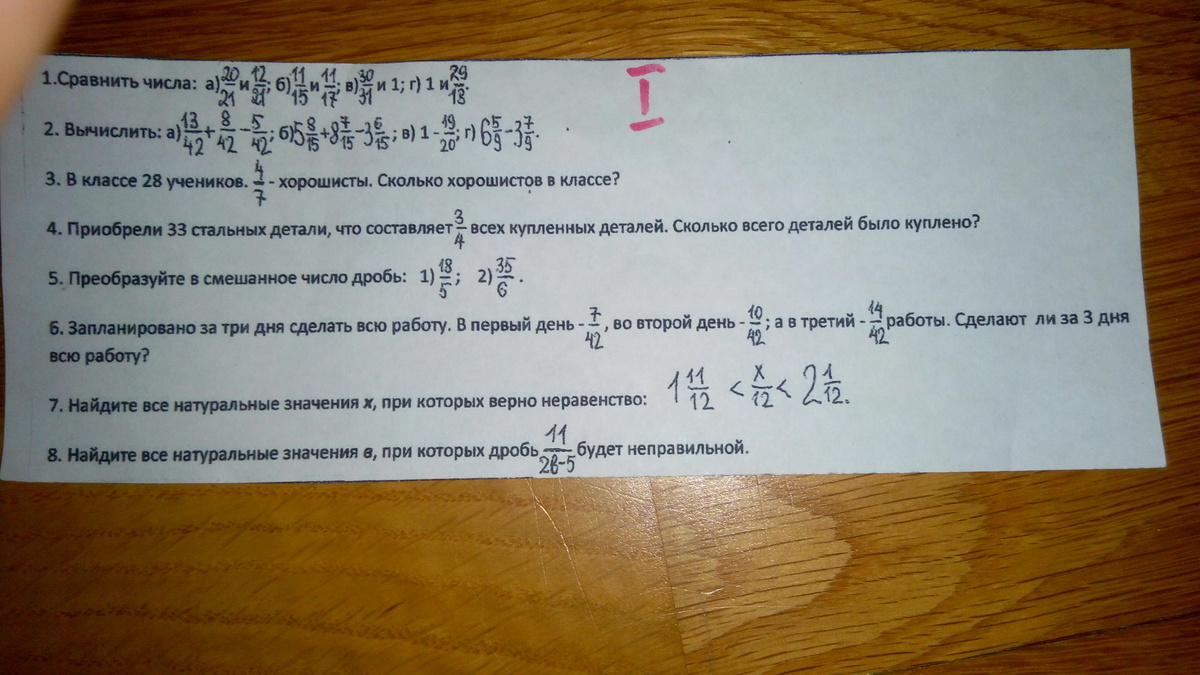 I
1.Сравнить числа: а) 20/21 и 12/21; б) 11/15 и 11/17; в) 30/31 и 1; г) 1 и 29/18.
2. Вычислить: а) 13/42 + 8/42 − 5/42; б) 5 8/15 + 8 7/15 − 3 6/15; в) 1 - 19/20; г) 6 5/9 − 3 7/9.
3. В классе 28 учеников. 4/7 - хорошисты. Сколько хорошистов в классе?
4. Приобрели 33 стальных детали, что составляет 3/4 всех купленных деталей. Сколько всего деталей было куплено?
5. Преобразуйте в смешанное число дробь: 1) 18/5; 2) 35/6.
6. Запланировано за три дня сделать всю работу. В первый день - 7/42, во второй день - 10/42; а в третий - 14/42 работы. Сделают ли за 3 дня
всю работу?
7. Найдите все натуральные значения х, при которых верно неравенство: 1 11/12 < х/12 < 2 1/12.
8. Найдите все натуральные значения в, при которых дробь 11/2в-5 будет неправильной.